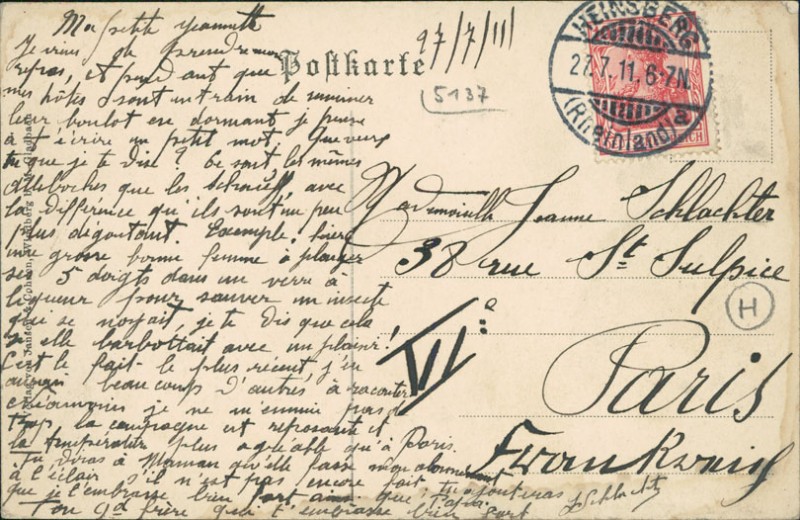 Ma petite Jeannette
Je viens de prendre mon
repas, et pendant que
mes hôtes sont en train de ruminer
leur boulot en dormant je pense
à t'écrire un petit mot. Que veux
tu que je te dise? Ce sont les mêmes
Alleboches que les Schneuff, avec
la différence qu'ils sont un peu
plus dégoutant. Exemple: hier
une grosse bonne femme à plonger
ses 5 doigts dans un verre à
liqueur pour sauver un insecte
qui se noyait, je te dis que cela
elle barbottait avec un plaisir!
C'est le fait le plus récent, j'en
aurais beaucoup d'autres à raconter
néanmoins je ne m'ennuie pas
trop la campagne est reposante et
la température plus agréable qu'à Paris.
Tu diras à Maman qu'elle fasse mon abonnement
à l'éclair s'il n'est pas encore fait, tu ajouteras
que je l'embrasse bien fort ainsi que Papa.
Ton gd frère qui t'embrasse bien fort
JSchlachter
Postkarte
27/7/11
5137
HEINSBERG
27.7.11.6-7N.
(Rheinland)
a
REICH
Mademoiselle Jeanne Schlachter
38 rue St Sulpice
VIe
Paris
Frankreich
H